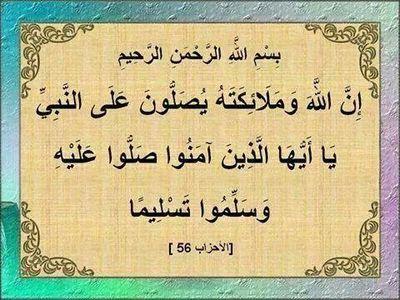 بِسْمِ اللَّهِ الرَّحْمَنِ الرَّحِيم
إِنَّ اللَّهَ وَمَلَائِكَتَهُ يُصَلُّونَ عَلَى النَّبِيِّ
يَا أَيُّهَا الَّذِينَ آمَنُوا صَلُّوا عَلَيْهِ
وَسَلِّمُوا تَسْلِيمًا
[الأحزاب 56 ]